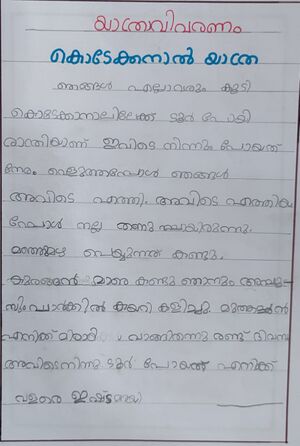 യാത്രവിവരണം
കൊടേക്കനാൽ യാത്ര
ഞങ്ങൾ എല്ലാവരും കൂടി
കൊടേക്കാനാലിലേക്ക് ടൂർ പോയി
രാത്രിയാണ് ഇവിടെ നിന്നും പോയത്
നേരം വെളുത്തപ്പോൾ ഞങ്ങൾ
അവിടെ എത്തി. അവിടെ എത്തിയ
പ്പോൾ നല്ല തണുപ്പായിരുന്നു.
മഞ്ഞുമഴ പെയ്യുന്നത് കണ്ടു.
കുരങ്ങൻ മാരെ കണ്ടു ഞാനും
പാർക്കിൽ കയറി കളിച്ചു.
എനിക്ക് വാങ്ങിതന്നു രണ്ട് ദിവസം
അവിടെനിന്നു ടൂർ പോയത് എനിക്ക്
വളരെ ഇഷ്ടമായി